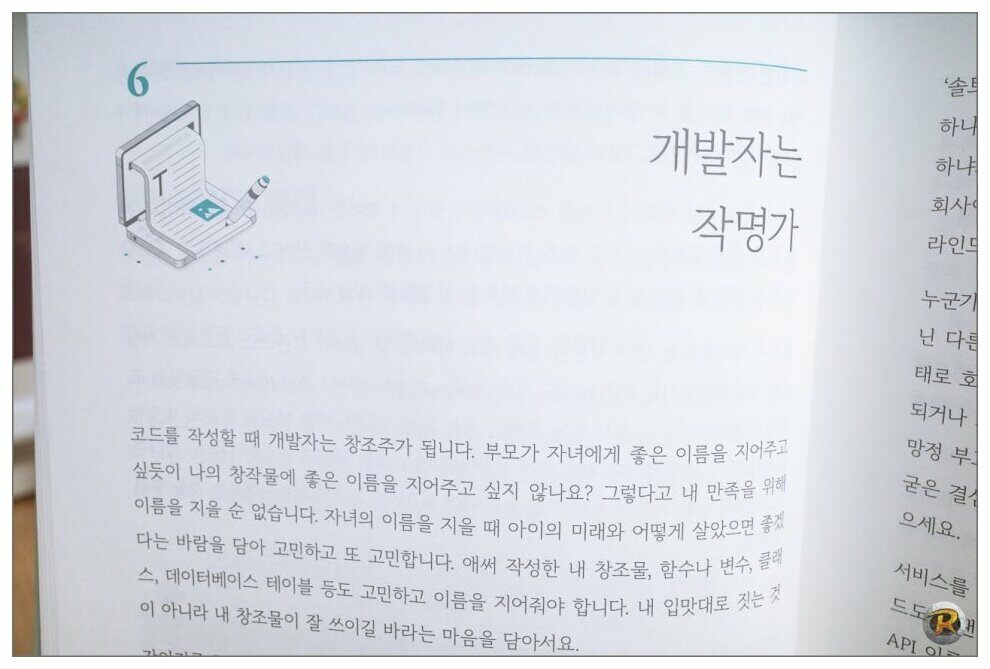 6
T
A
개발자는
작명가
코드를 작성할 때 개발자는 창조주가 됩니다. 부모가 자녀에게 좋은 이름을 지어주고
싶듯이 나의 창작물에 좋은 이름을 지어주고 싶지 않나요? 그렇다고 내 만족을 위해
이름을 지을 순 없습니다. 자녀의 이름을 지을 때 아이의 미래와 어떻게 살았으면 좋겠
다는 바람을 담아 고민하고 또 고민합니다. 애써 작성한 내 창조물, 함수나 변수, 클래
스, 데이터베이스 테이블 등도 고민하고 이름을 지어줘야 합니다. 내 입맛대로 짓는 것
이 아니라 내 창조물이 잘 쓰이길 바라는 마음을 담아서요.
하나
하냐
회사
라인드
누군가
닌 다른
태로 회
되거나
망정 부
굳은 결심
으세요.
서비스를
드도
API
R